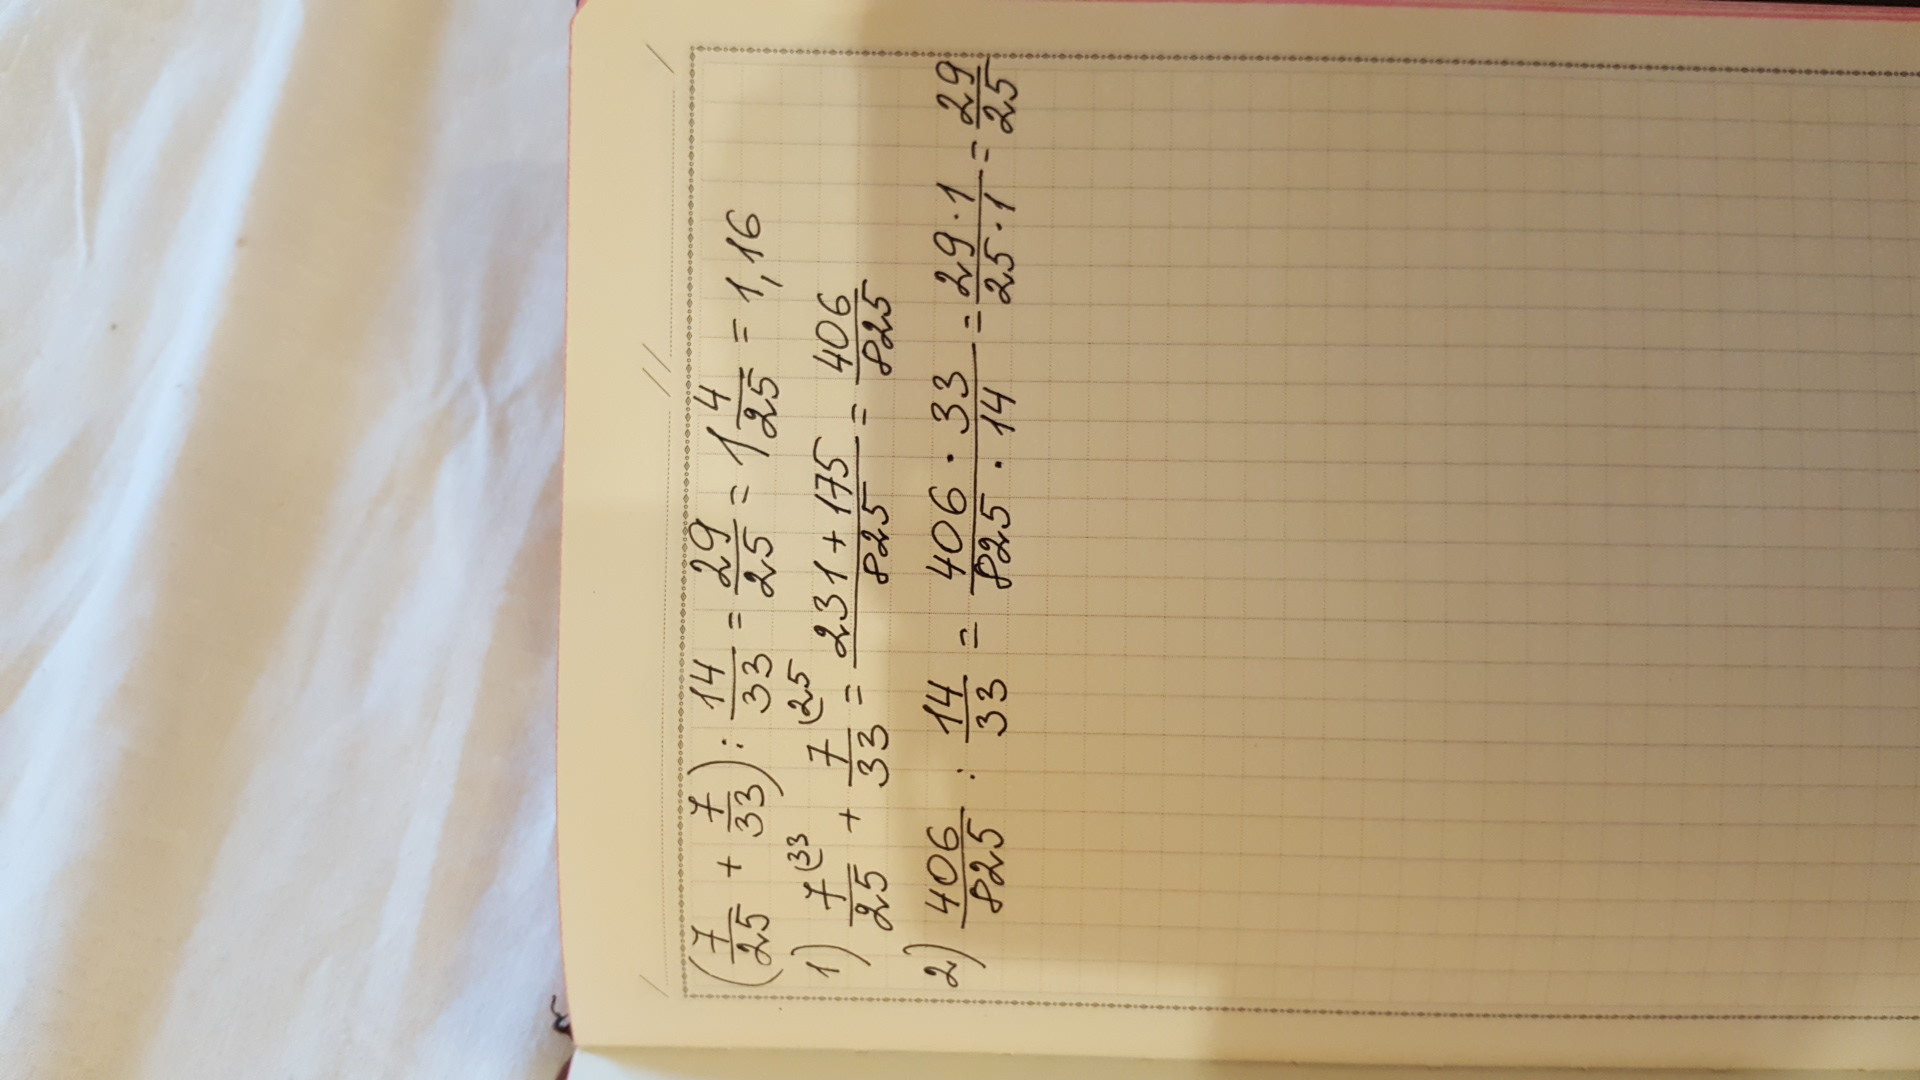 (7/25 + 7/33) : 14/33 = 29/25 = 1 4/25 = 1,16
1) 7(33/25 + 7(25/33 = 231+175/825 = 406/825
2) 406/825 : 14/33 = 406 · 33/825 · 14 = 29 · 1/25 · 1 = 29/25